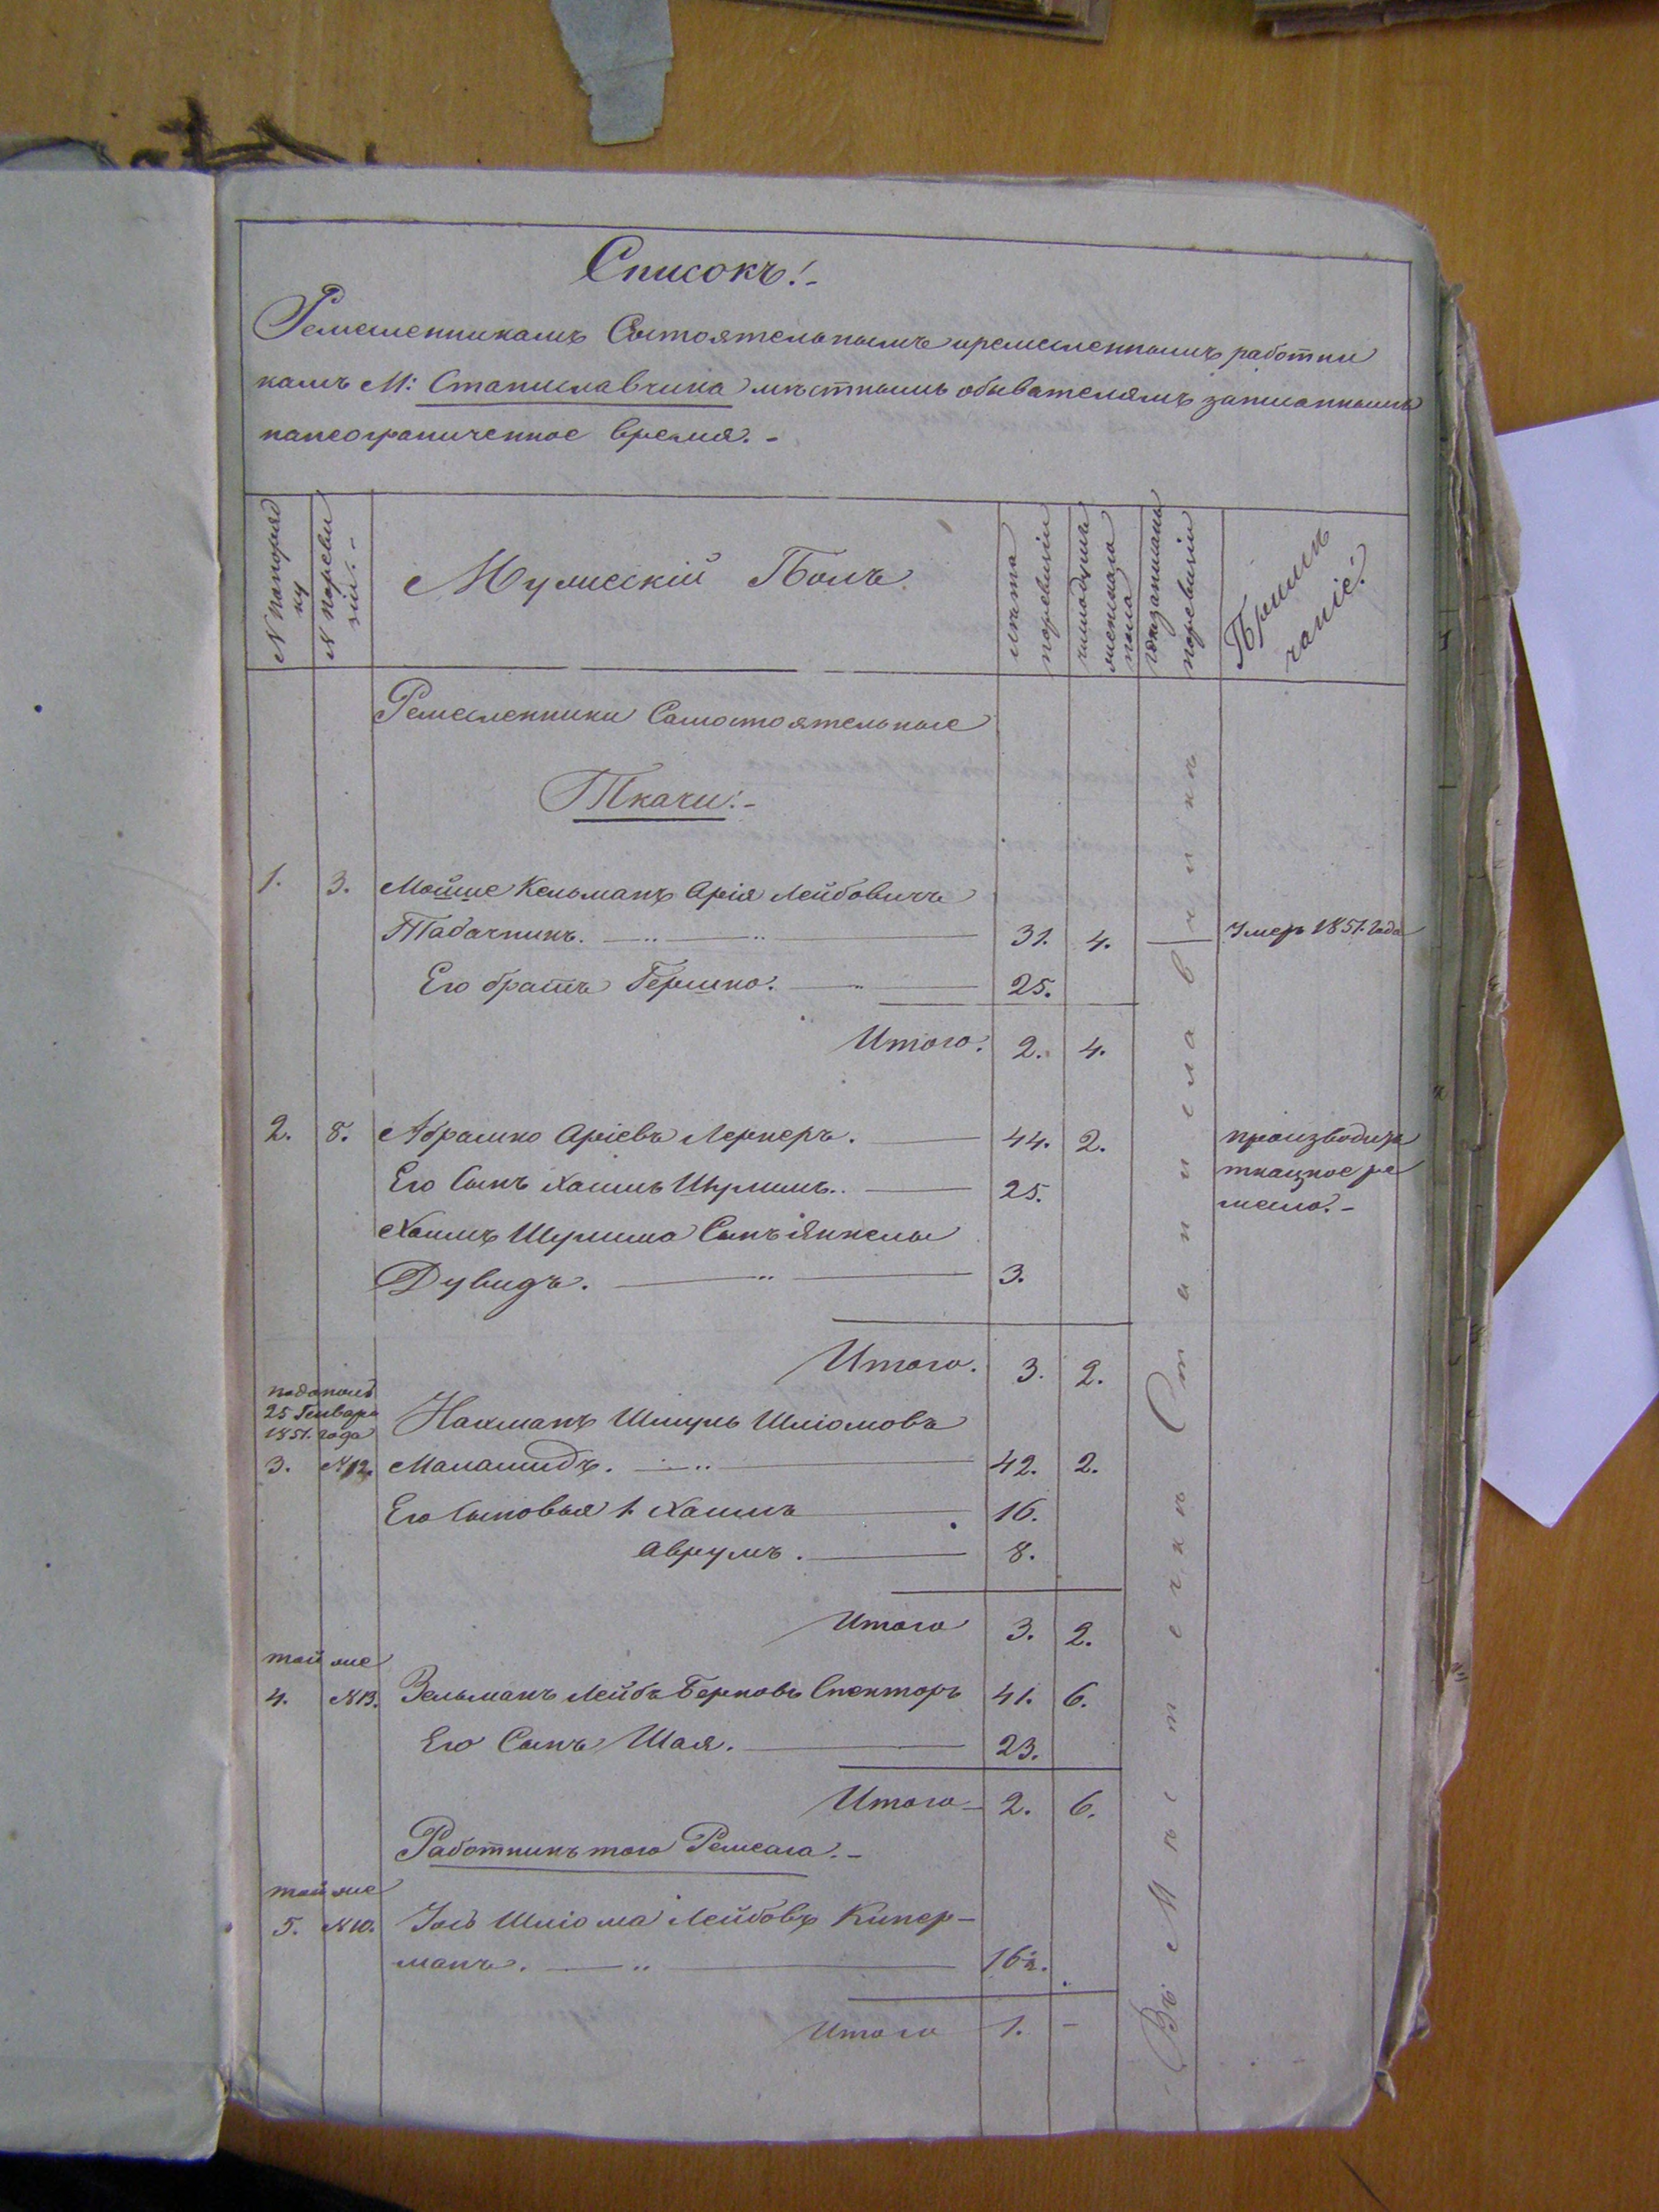 Списокъ!-
Ремесленникамъ Состоятельнымъ и ремесленнымъ работни
камъ М: Станиславчика мѣстнымъ обывателямъ записаннымъ
на неограниченное время.-
N по поряд
ку
N по реви
зіи.-
Мужескій Полъ
лѣта
по ревизіи
число душъ
женскаго
пола
по ревизіи
Примѣ
чаніе.
Ремесленники Самостоятельные
Ткачи:-
1. 3. Мойше Кельманъ Арія Лейбовичъ
Табачникъ. 31. 4. Умеръ 1851. года
Его братъ Гершко. 25.
Итого. 2. 4.
2. 8. Абрамко Аріевъ Лернеръ. 44. 2. производитъ
Его Сынъ Хаимъ Шулимъ.. 25. ткацкое ре
месло.-
Хаимъ Шулима Сынъ Янкель
Дувидъ. 3.
Итого. 3. 2.
25 Генваря
1851. года
Нахманъ Шмуль Шліомовъ
3. N12. Маламидъ. 42. 2.
Его Сыновья 1. Хаимъ 16.
Аврумъ. 8.
Итого 3. 2.
той же
4. N13. Зельманъ Лейбъ Берковъ Спекторъ 41. 6.
Его Сынъ Шая. 23.
Итого 2. 6.
Работникъ того Ремесла.-
той же
5. N10. Іось Шліома Лейбовъ Кипер-
манъ. 16
Итого 1. -
Въ Мѣстечкѣ Станиславчикѣ